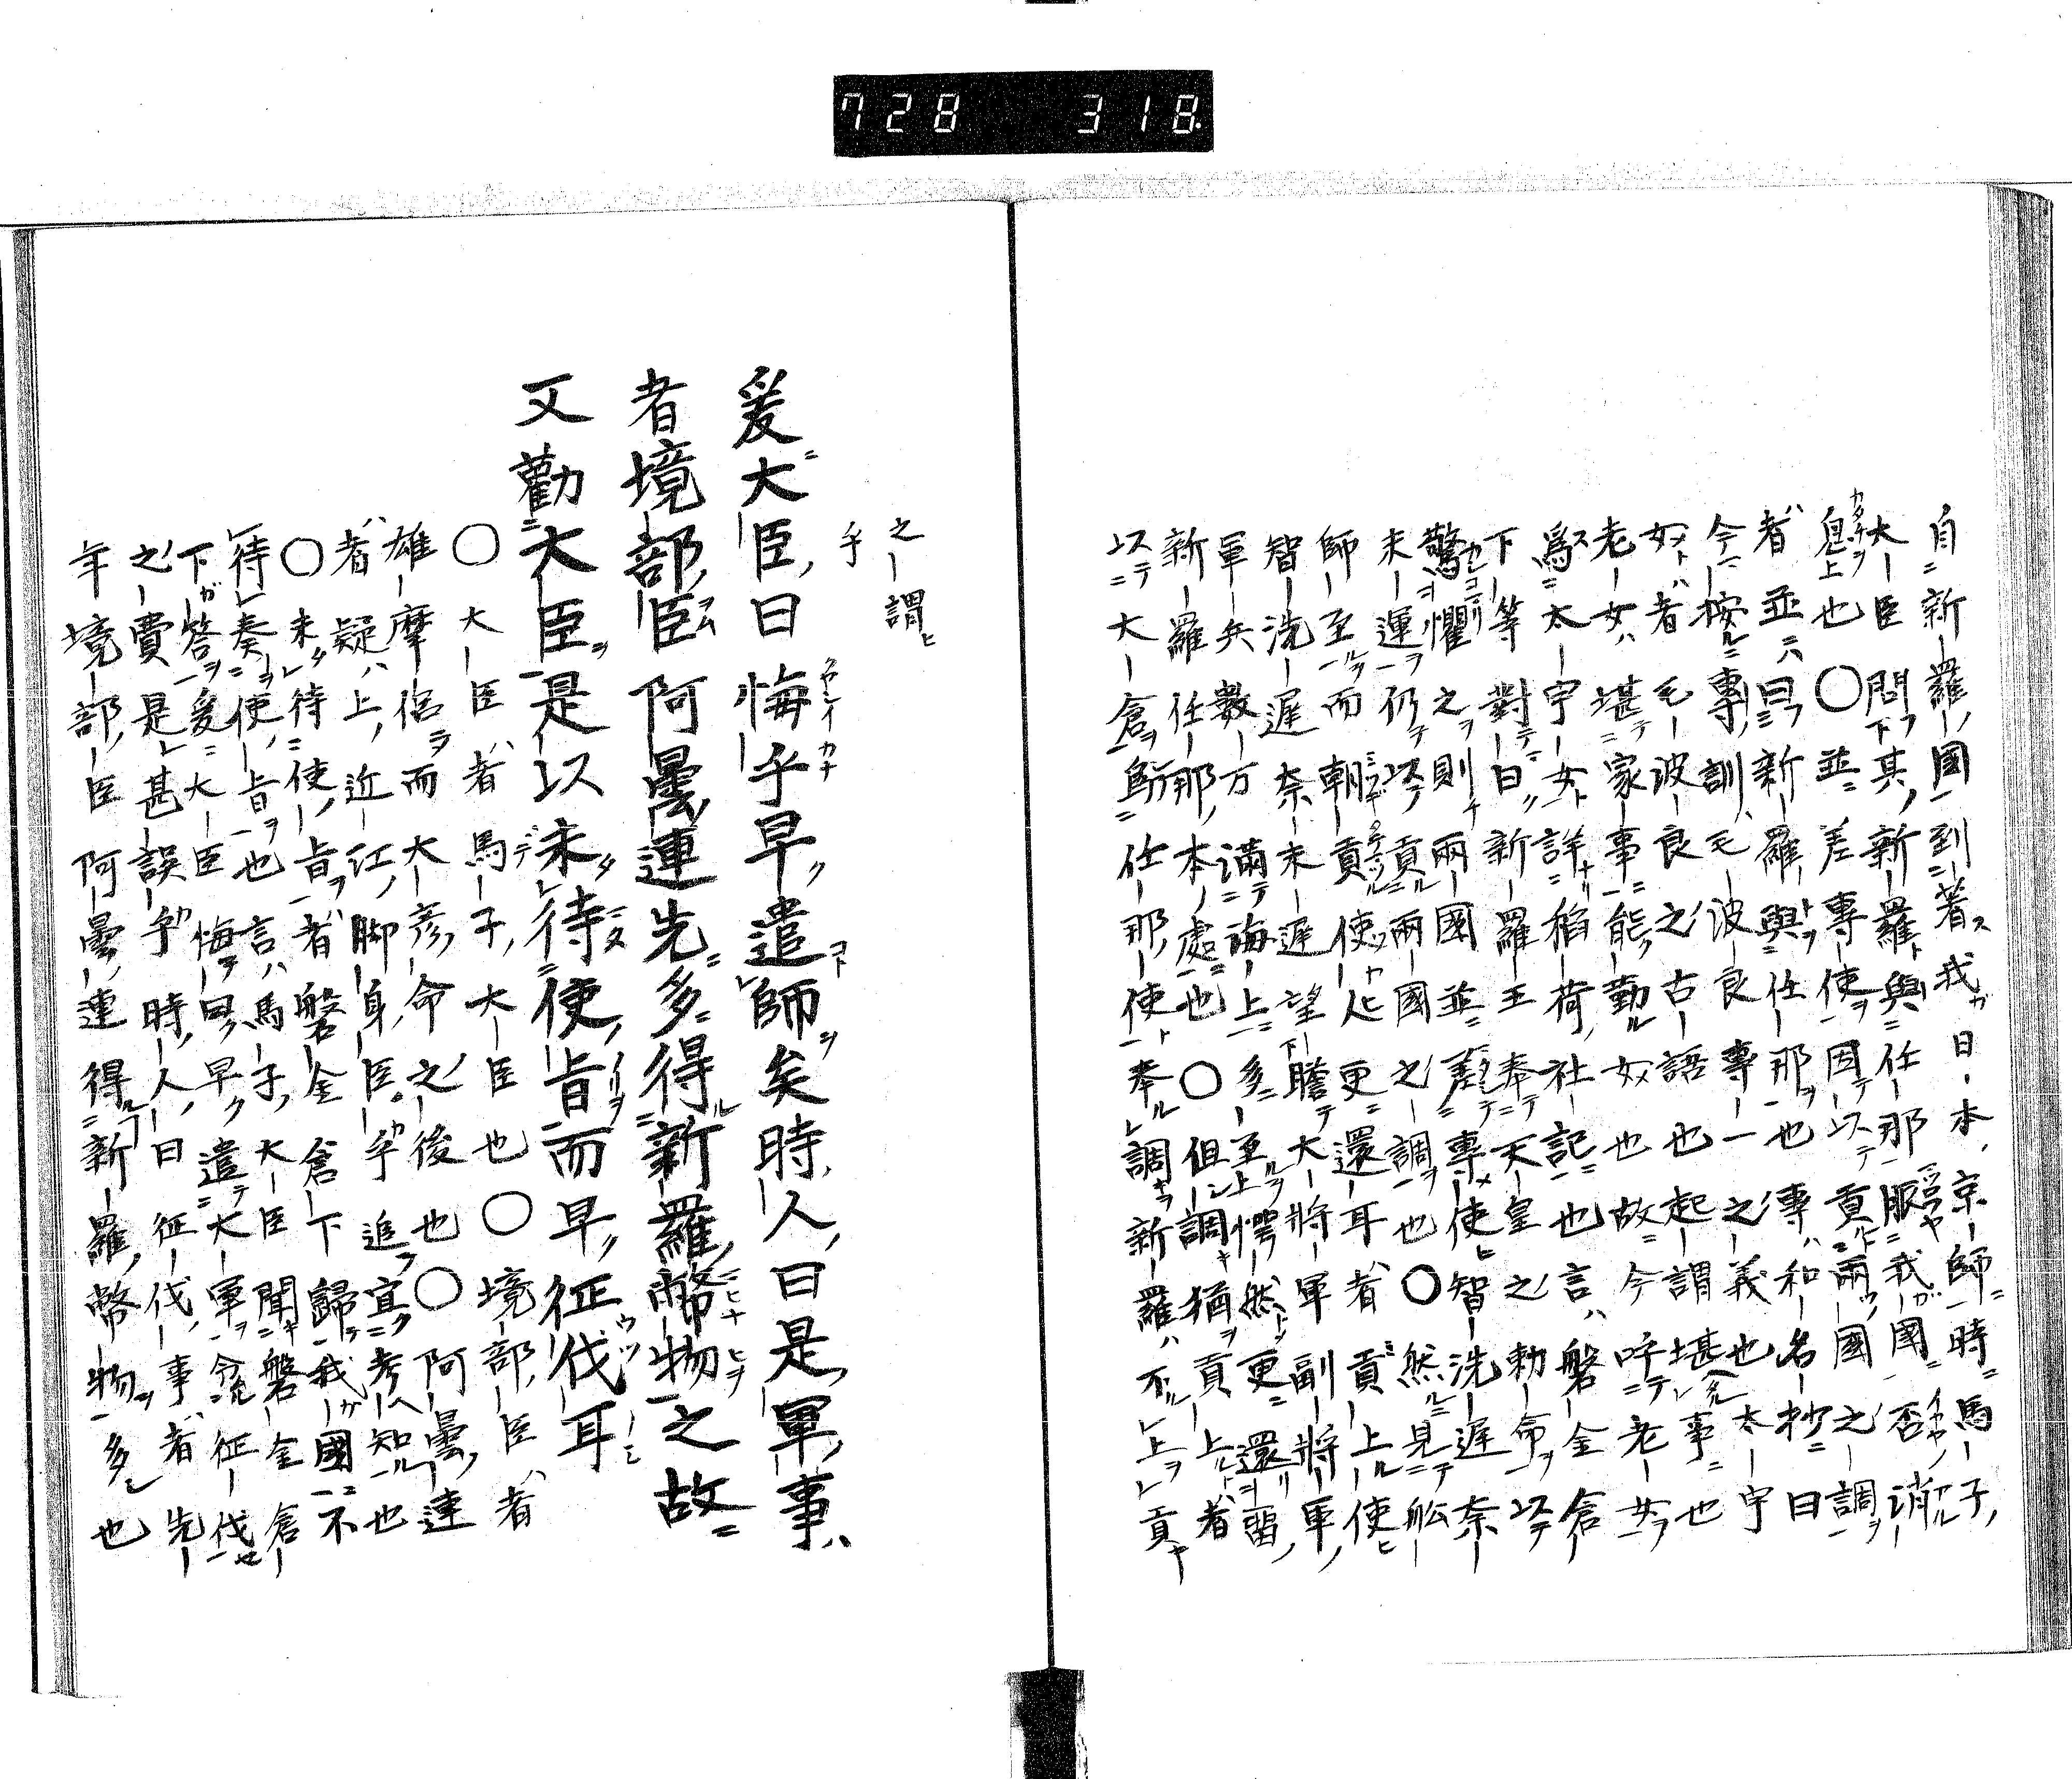 728 318
自新羅國到著我日本京師時馬子
大臣問其新羅與任那服我國否消
息也〇並差專使因以貢兩國之調
者並曰新羅與任那也專和名抄曰
今按專訓毛波良專一之義也太宇
女者毛波良之古語也起謂堪事也
老女堪家事能勤奴也故今呼老女
爲太宇女詳稻荷社記也言磐金倉
下等對曰新羅王奉天皇之勅命以
驚懼之則貢兩國並差專使智洗遲奈
未運仍以貢兩國之調也〇然見船
師至而朝貢使人更還耳者貢上使
智洗遲奈未遲望瞻大將軍副將軍
軍兵數万滿海上多至愕然更還留
新羅任那本處也〇但調猶貢上者
以大倉爲任那使奉調新羅不上貢
之謂
乎
爰大臣曰悔乎早遣師矣時人曰是軍事
者境部臣阿曇連先多得新羅幣物之故
又勸大臣是以未待使旨而早征伐耳
〇大臣者馬子大臣也〇境部臣者
雄摩侶而大彦命之後也〇阿曇連
者疑上近江脚身臣乎追宜考知也
〇未待使旨者磐金倉下歸我國不
待奏使旨也言馬子大臣聞磐金倉
下答爰大臣悔曰早遣大軍令征伐
之費是甚誤乎時人曰征伐事者先
年境部臣阿曇連得新羅幣物多也